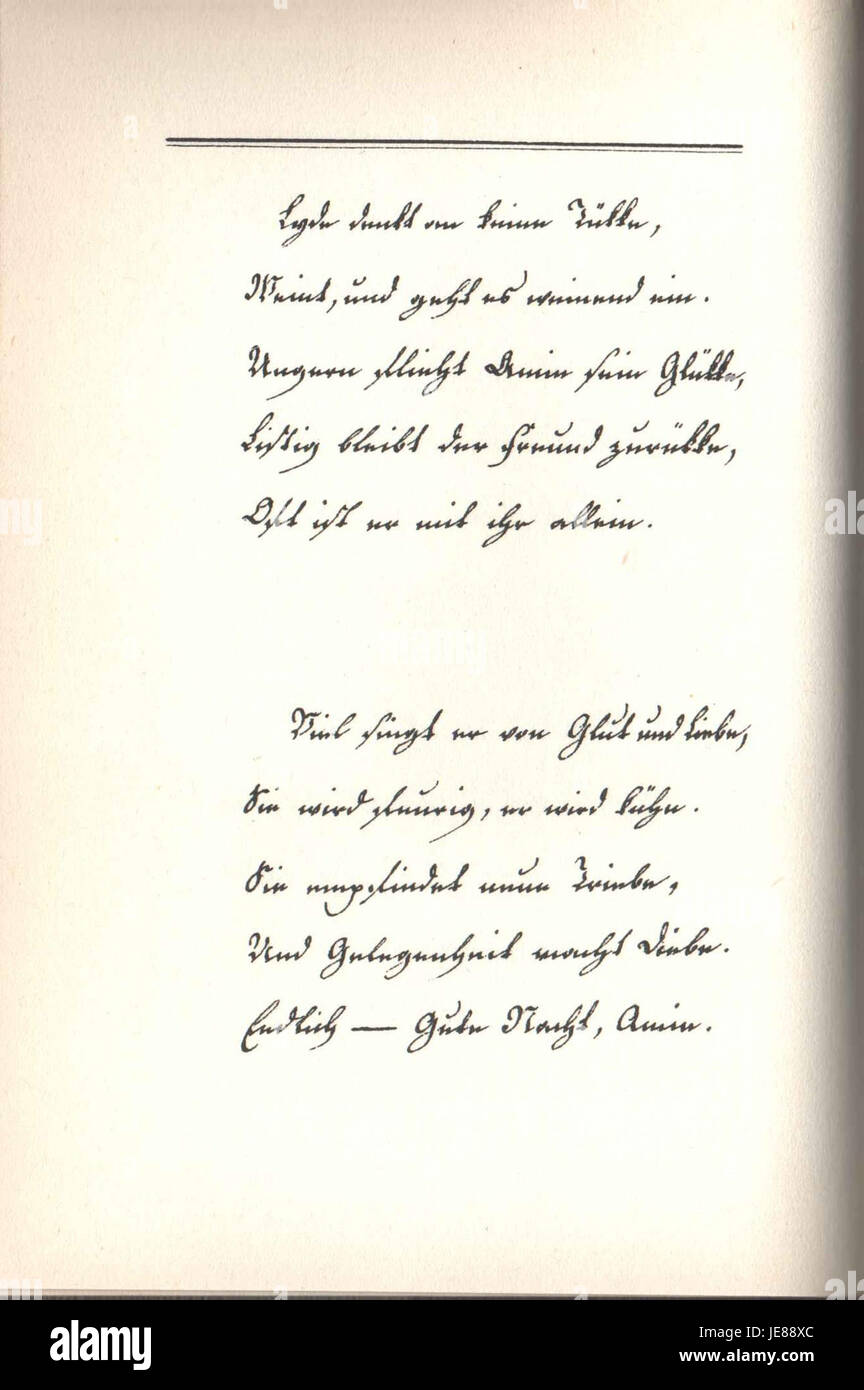 Lyde denkt an keine Tükke,
Weint, und geht es weinend ein.
Ungern flieht Amin sein Glükke,
Listig bleibt der Freund zurükke,
Oft ist er mit ihr allein.
Viel singt er von Glut und Liebe,
Sie wird feurig, er wird kühn.
Sie empfindet neue Triebe,
Und Gelegenheit macht Diebe.
Endlich — Gute Nacht, Amin.
alamy stock photo
JE88XC
www.alamy.com